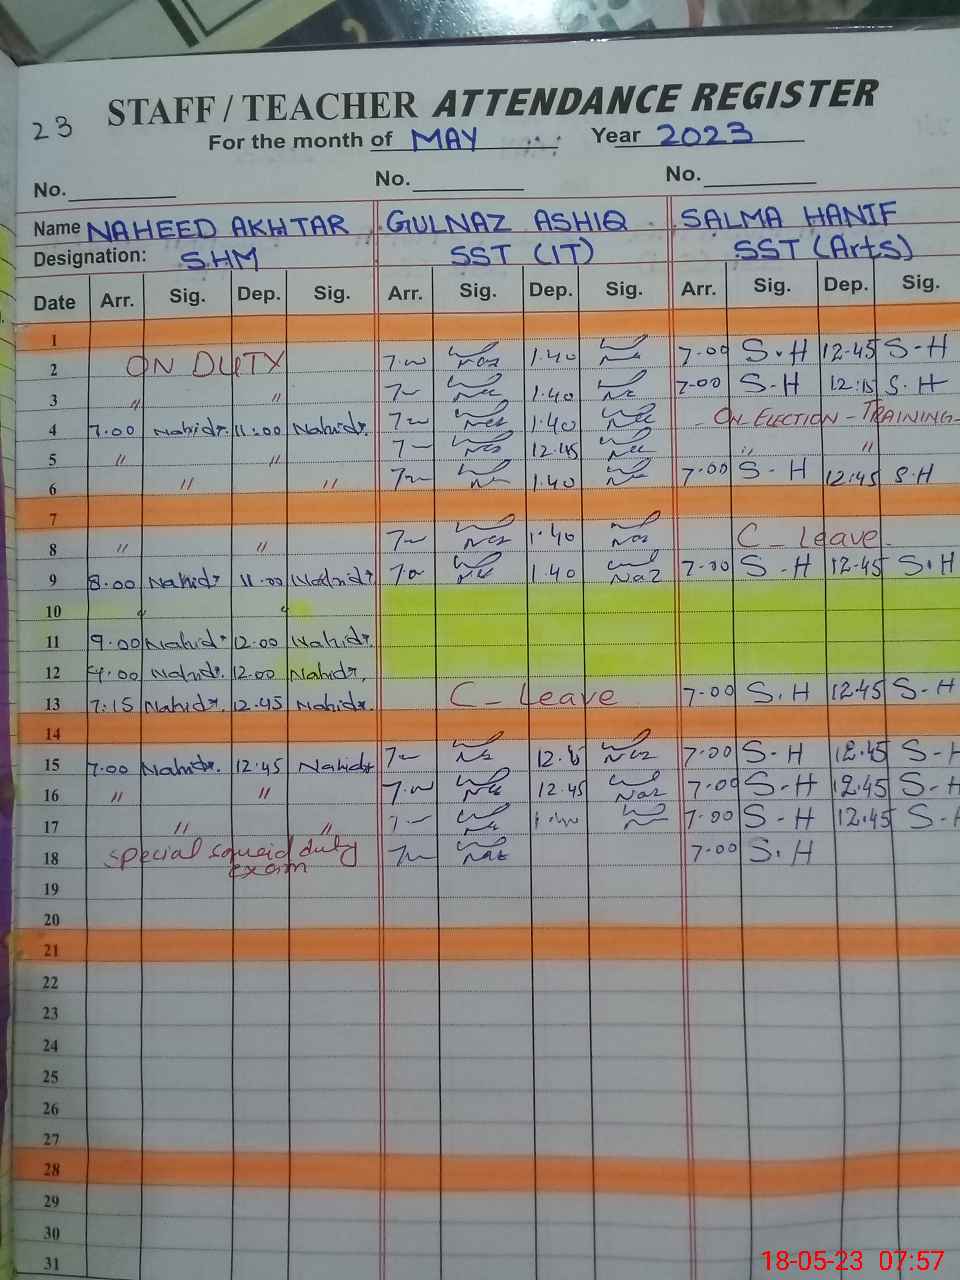 23
STAFF / TEACHER ATTENDANCE REGISTER
For the month of MAY Year 2023
No. No. No.
Name NAHEED AKHTAR GULNAZ ASHIQ SALMA HANIF
Designation: SHM SST (IT) SST (Arts)
Date Arr. Sig. Dep. Sig. Arr. Sig. Dep. Sig. Arr. Sig. Dep. Sig.
1
2 ON DUTY 1.40 7.00 S.H 12.45 S-H
3 " " 1.40 7.00 S-H 12:15 S.H
4 7.00 Nahid 11:00 Nahid 1.40 ON ELECTION - TRAINING-
5 " " 12.45 " "
6 " " 1.40 7.00 S-H 12:45 S.H
7
8 " " 1.40 C-Leave
9 8.00 Nahid 11.00 Nahid 1.40 Naz 7.00 S-H 12.45 S.H
10
11 9.00 Nahid 12.00 Nahid
12 Nahid 12.00 Nahid
13 7:15 Nahid 12.45 Nahid C-Leave 7.00 S.H 12.45 S-H
14
15 7.00 Nahid 12:45 Nahid 7.00 S-H 12.45 S-H
16 " " 12.45 Naz 7.00 S-H 12.45 S-H
17 " " 7.00 S-H 12.45 S-H
18 special squeid duty exam 7.00 S.H
19
20
21
22
23
24
25
26
27
28
29
30
31
18-05-23 07:57